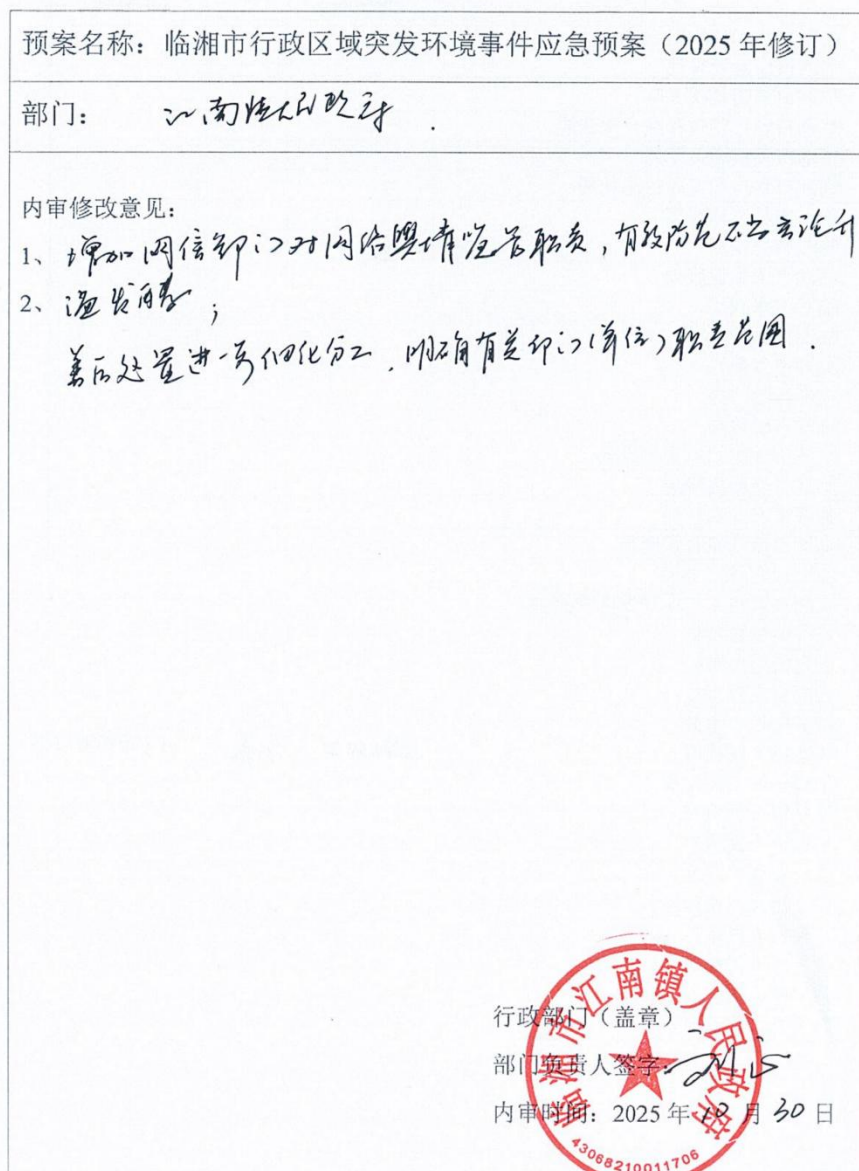 预案名称：临湘市行政区域突发环境事件应急预案（2025 年修订）
部门： 江南镇人民政府
内审修改意见：
1、增加网信部门对网络舆情监管职责，有效防范不当言论引
2、发酵；
善后处置进一步细化分工，明确有关部门（单位）职责范围．
行政部门（盖章）
部门负责人签字：
内审时间：2025 年 10 月 30 日
临湘市江南镇人民政府
43068210011706